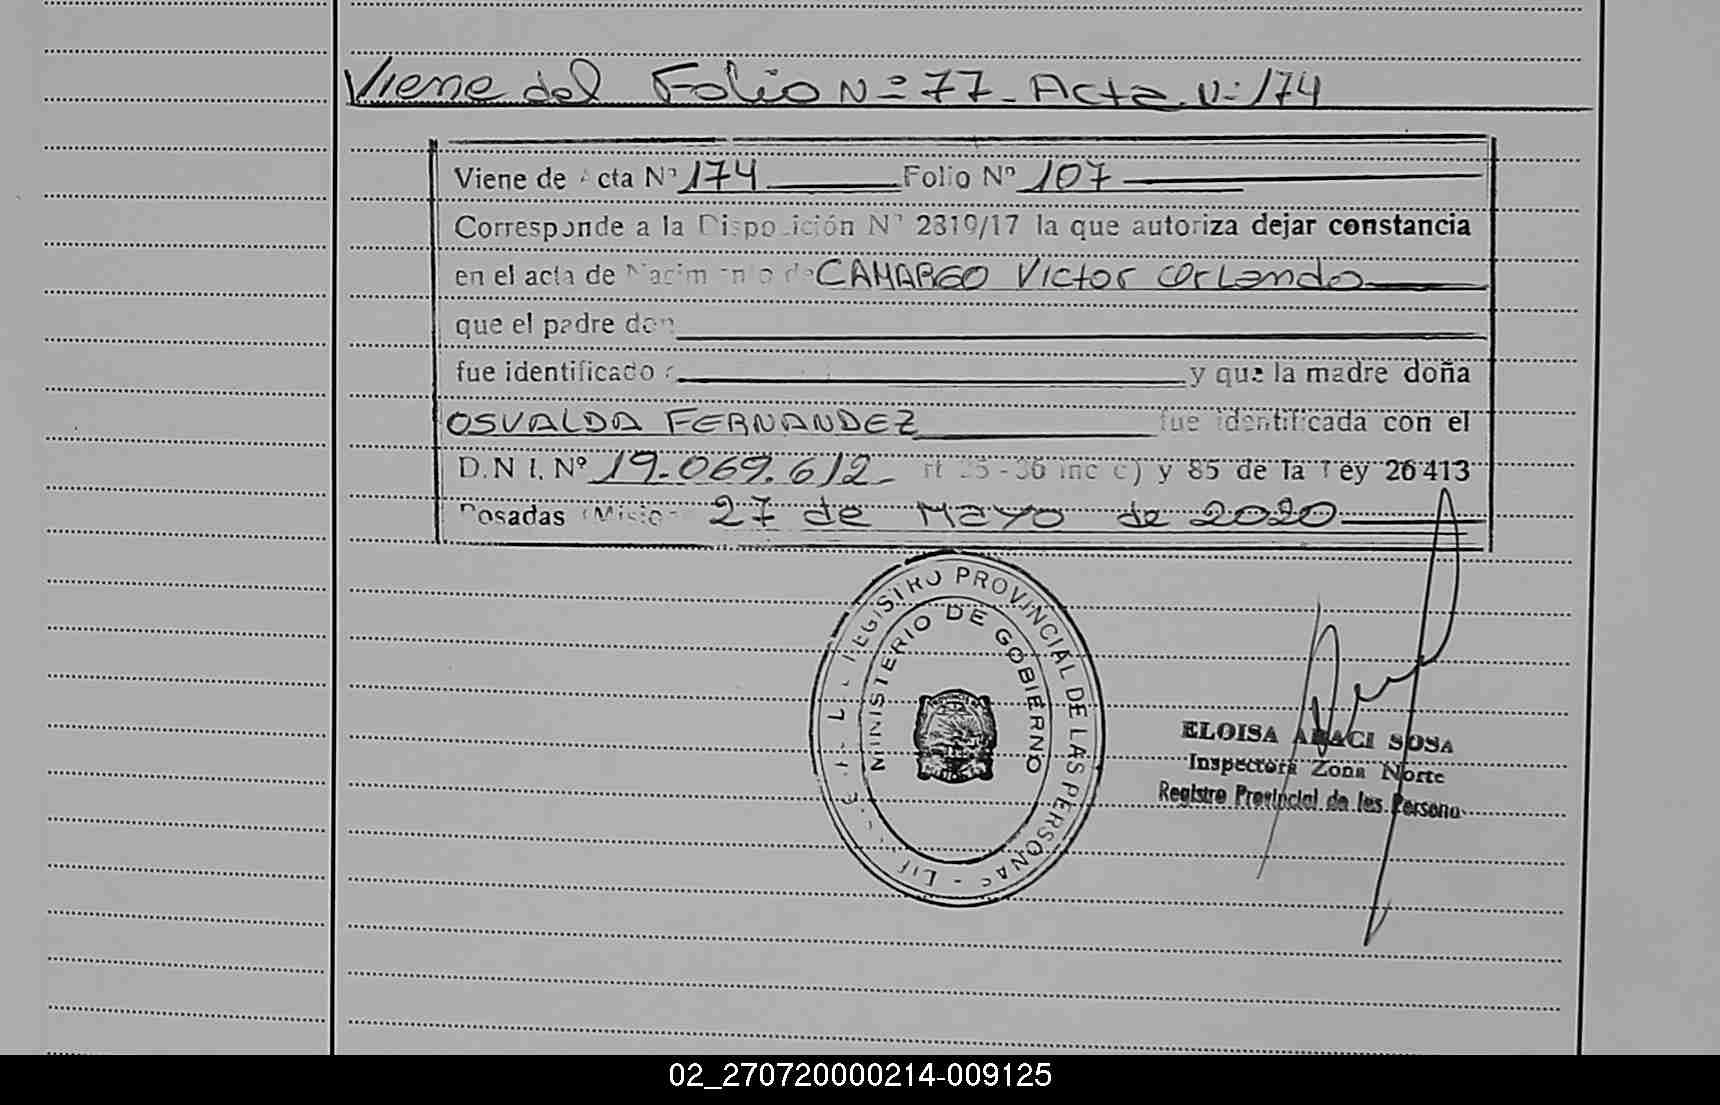 Viene del Folio Nº 77 - Acta Nº 174
Viene de Acta Nº 174 Folio Nº 107
Corresponde a la Disposición Nº 2819/17 la que autoriza dejar constancia
en el acta de Nacimiento de CAMARGO Victor Orlando
que el padre don
fue identificado y que la madre doña
OSVALDA FERNANDEZ fue identificada con el
D.N.I. Nº 19.069.612 - rt 35 - 36 inc c) y 85 de la Ley 26413
Posadas (Misio 27 de Mayo de 2020
REGISTRO PROVINCIAL DE LAS PERSONAS
MINISTERIO DE GOBIERNO
ELOISA ARACI SOSA
Inspectora Zona Norte
Registro Provincial de las Persona
02_270720000214-009125